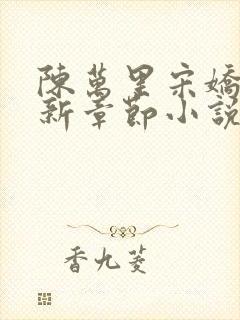 陳萬里宋嬌
新章節小說
香九菱